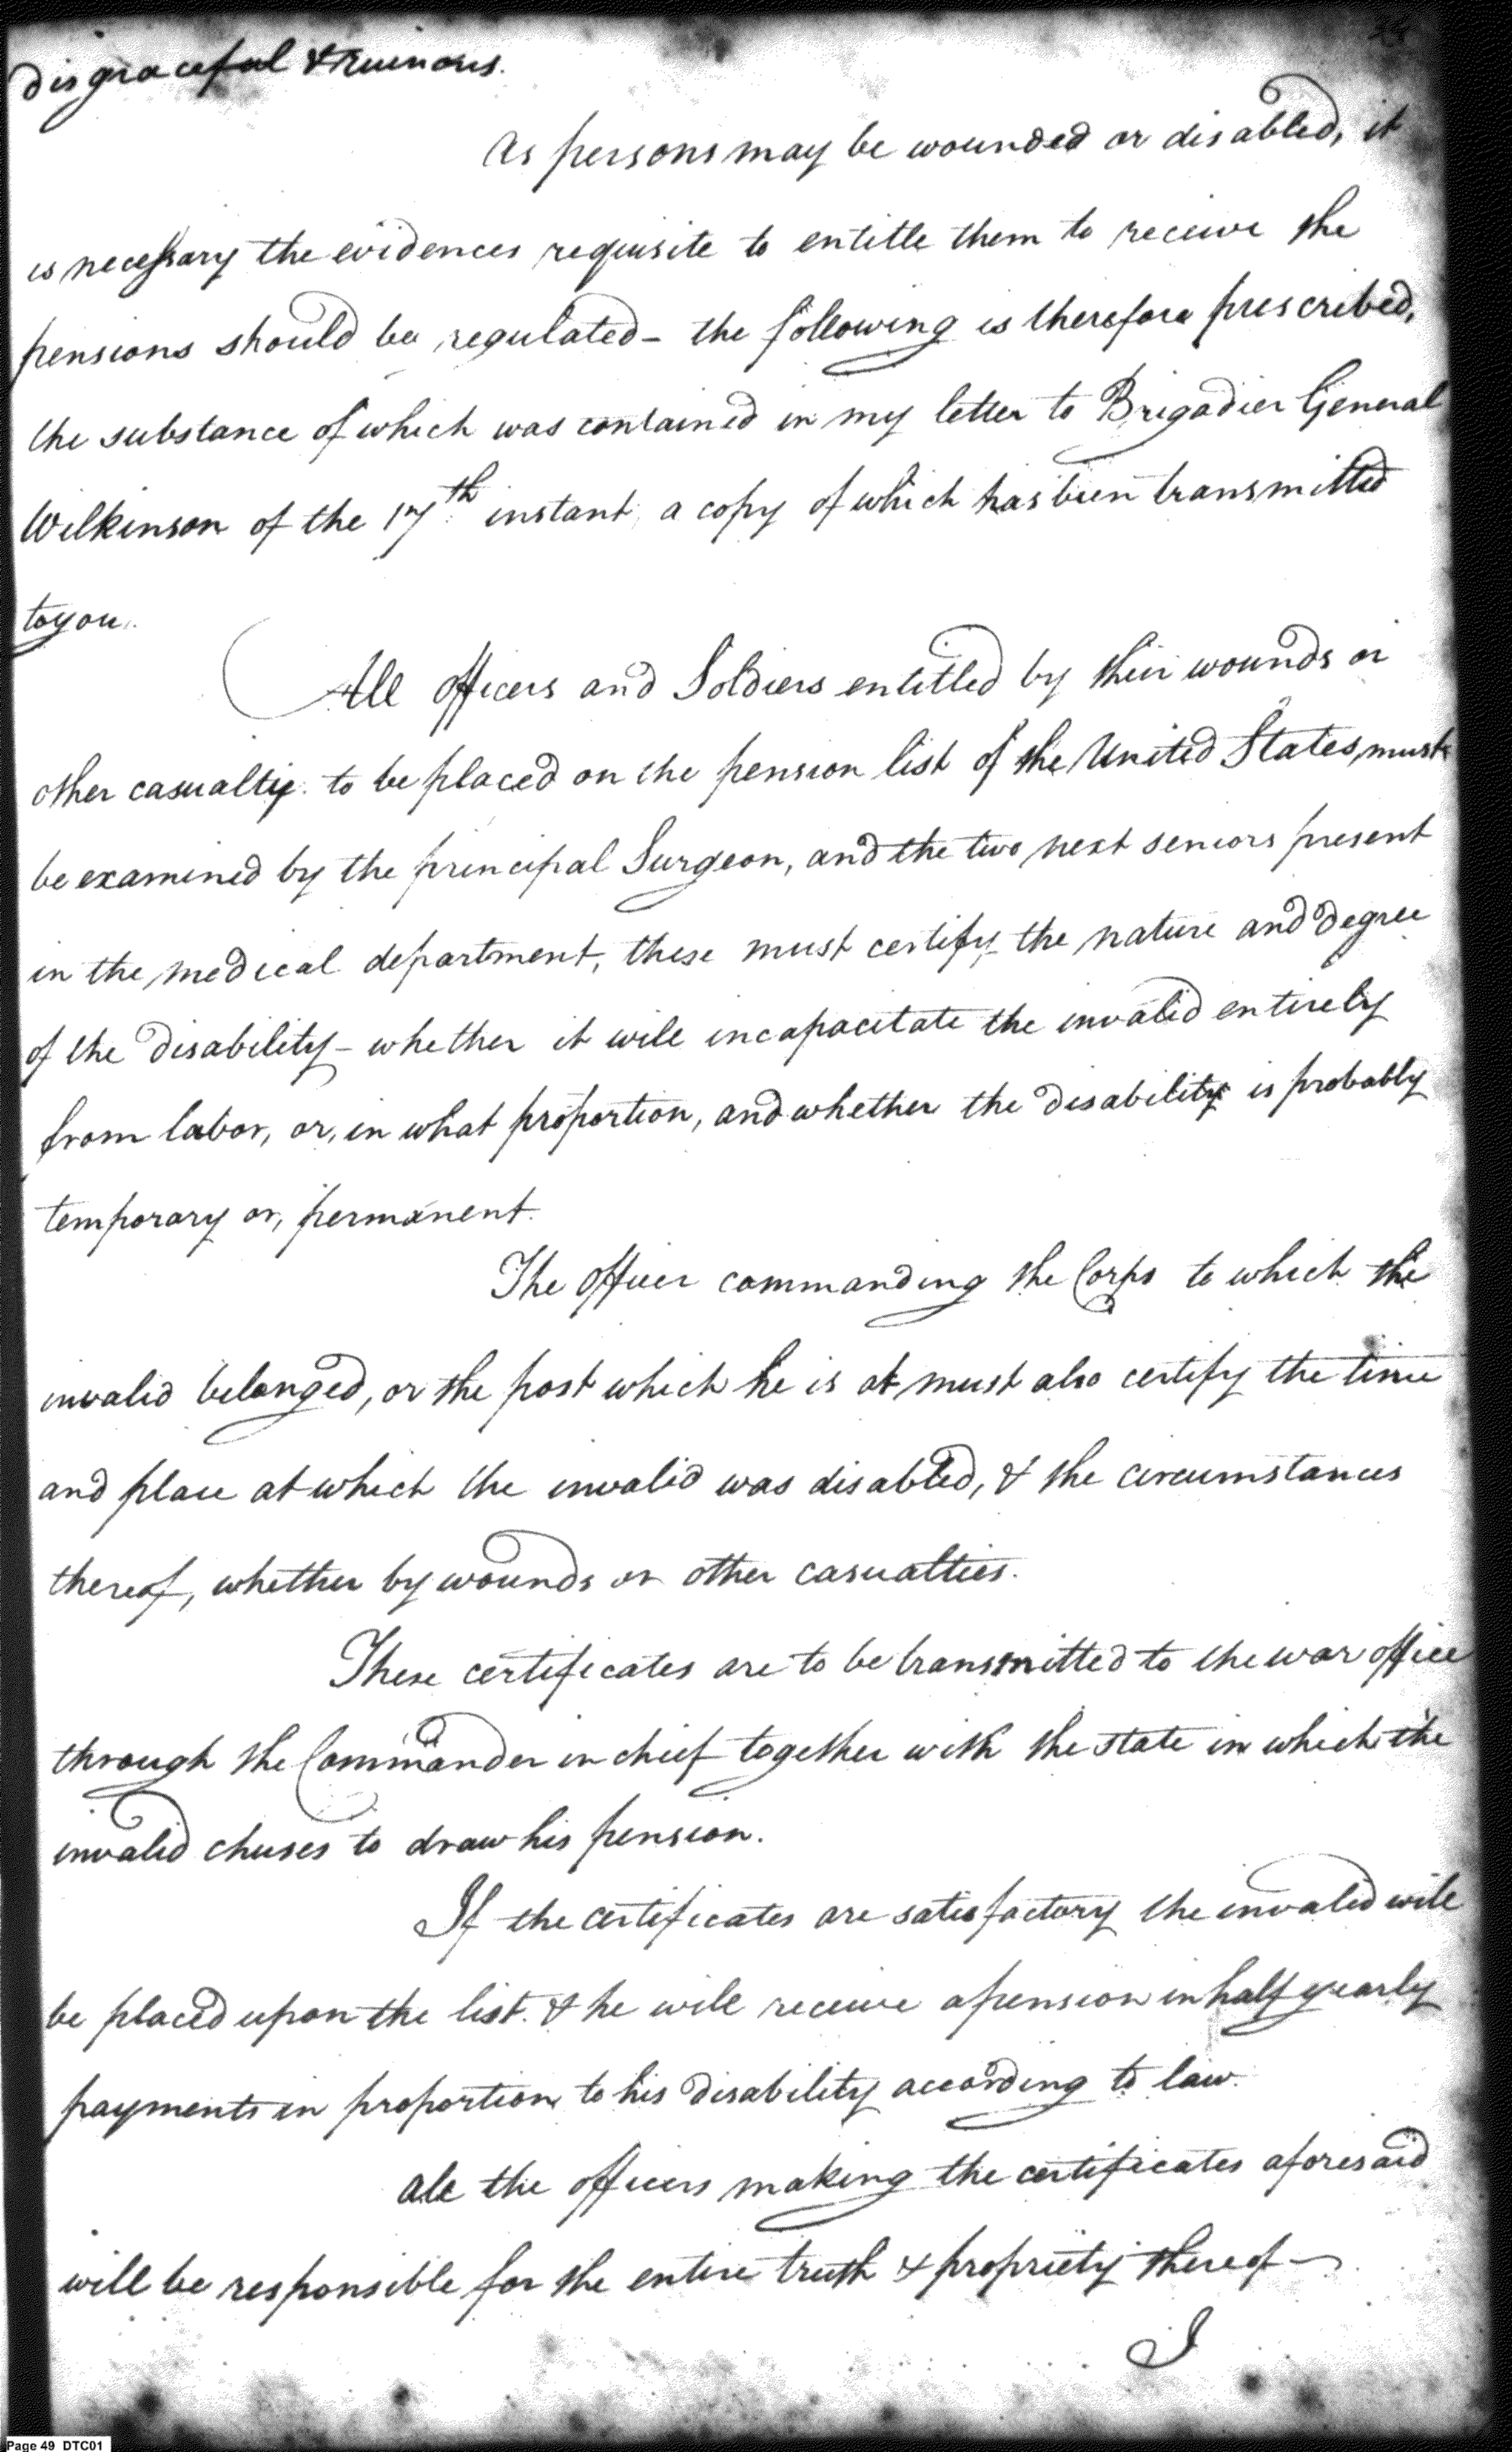 disgraceful & ruinous.
As persons may be wounded or disabled, it
is necessary the evidences requisite to entitle them to receive the
pensions should be regulated - the following is therefore prescribed,
the substance of which was contained in my letter to Brigadier General
Wilkinson of the 17th instant, a copy of which has been transmitted
to you.
All officers and Soldiers entitled by their wounds or
other casualty. to be placed on the pension list of the United States, must
be examined by the principal Surgeon, and the two next seniors present
in the medical department, these must certify the nature and degree
of the disability - whether it will incapacitate the invalid entirely
from labor, or, in what proportion, and whether the disability is probably
temporary or, permanent.
The officer commanding the Corps to which the
invalid belonged, or the post which he is at must also certify the time
and place at which the invalid was disabled, & the circumstances
thereof, whether by wounds or other casualties.
These certificates are to be transmitted to the war office
through the Commander in chief together with the state in which the
invalid chuses to draw his pension.
If the certificates are satisfactory the invalid will
be placed upon the list. & he will receive a pension in half yearly
payments in proportion to his disability according to law.
All the officers making the certificates aforesaid
will be responsible for the entire truth & propriety thereof -
I
Page 49 DTC01